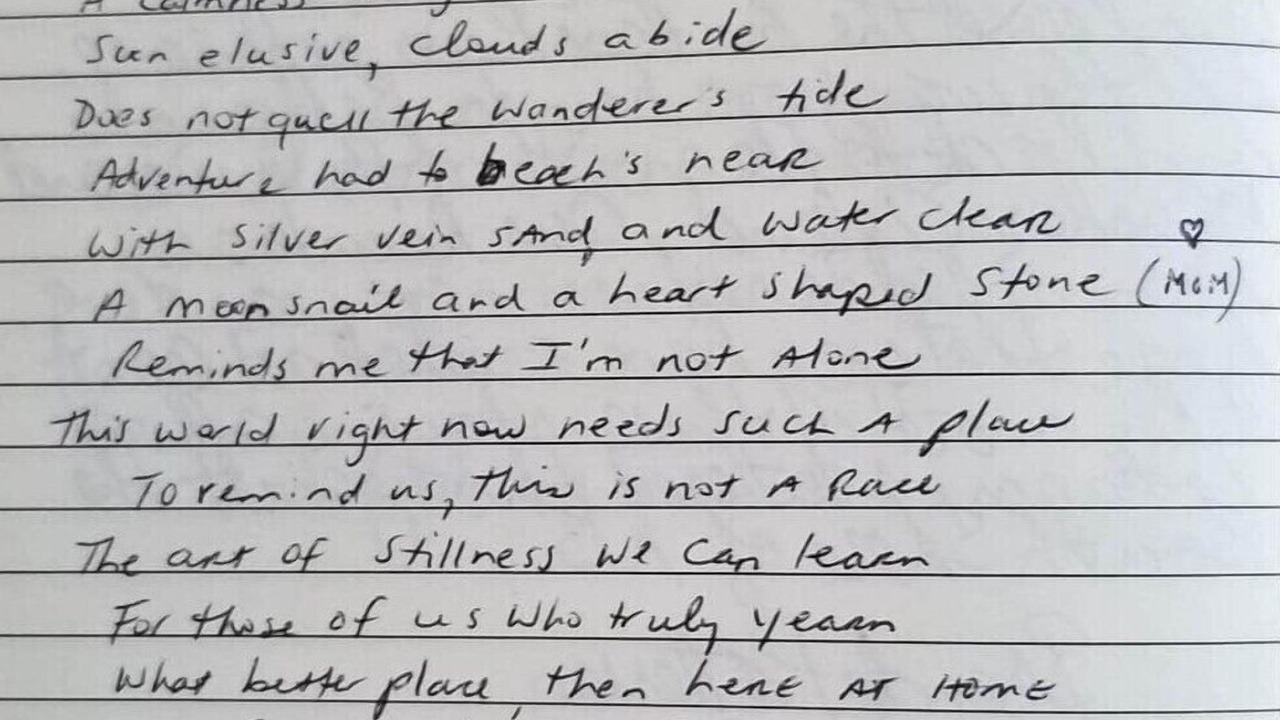 A calmness
Sun elusive, clouds abide
Does not quell the wanderer's tide
Adventure had to beach's near
With silver vein sand, and water clear
A moon snail and a heart shaped stone (MOM) ♡
Reminds me that I'm not Alone
This world right now needs such A place
To remind us, this is not A Race
The art of stillness we can learn
For those of us who truly yearn
What better place, then here AT HOME